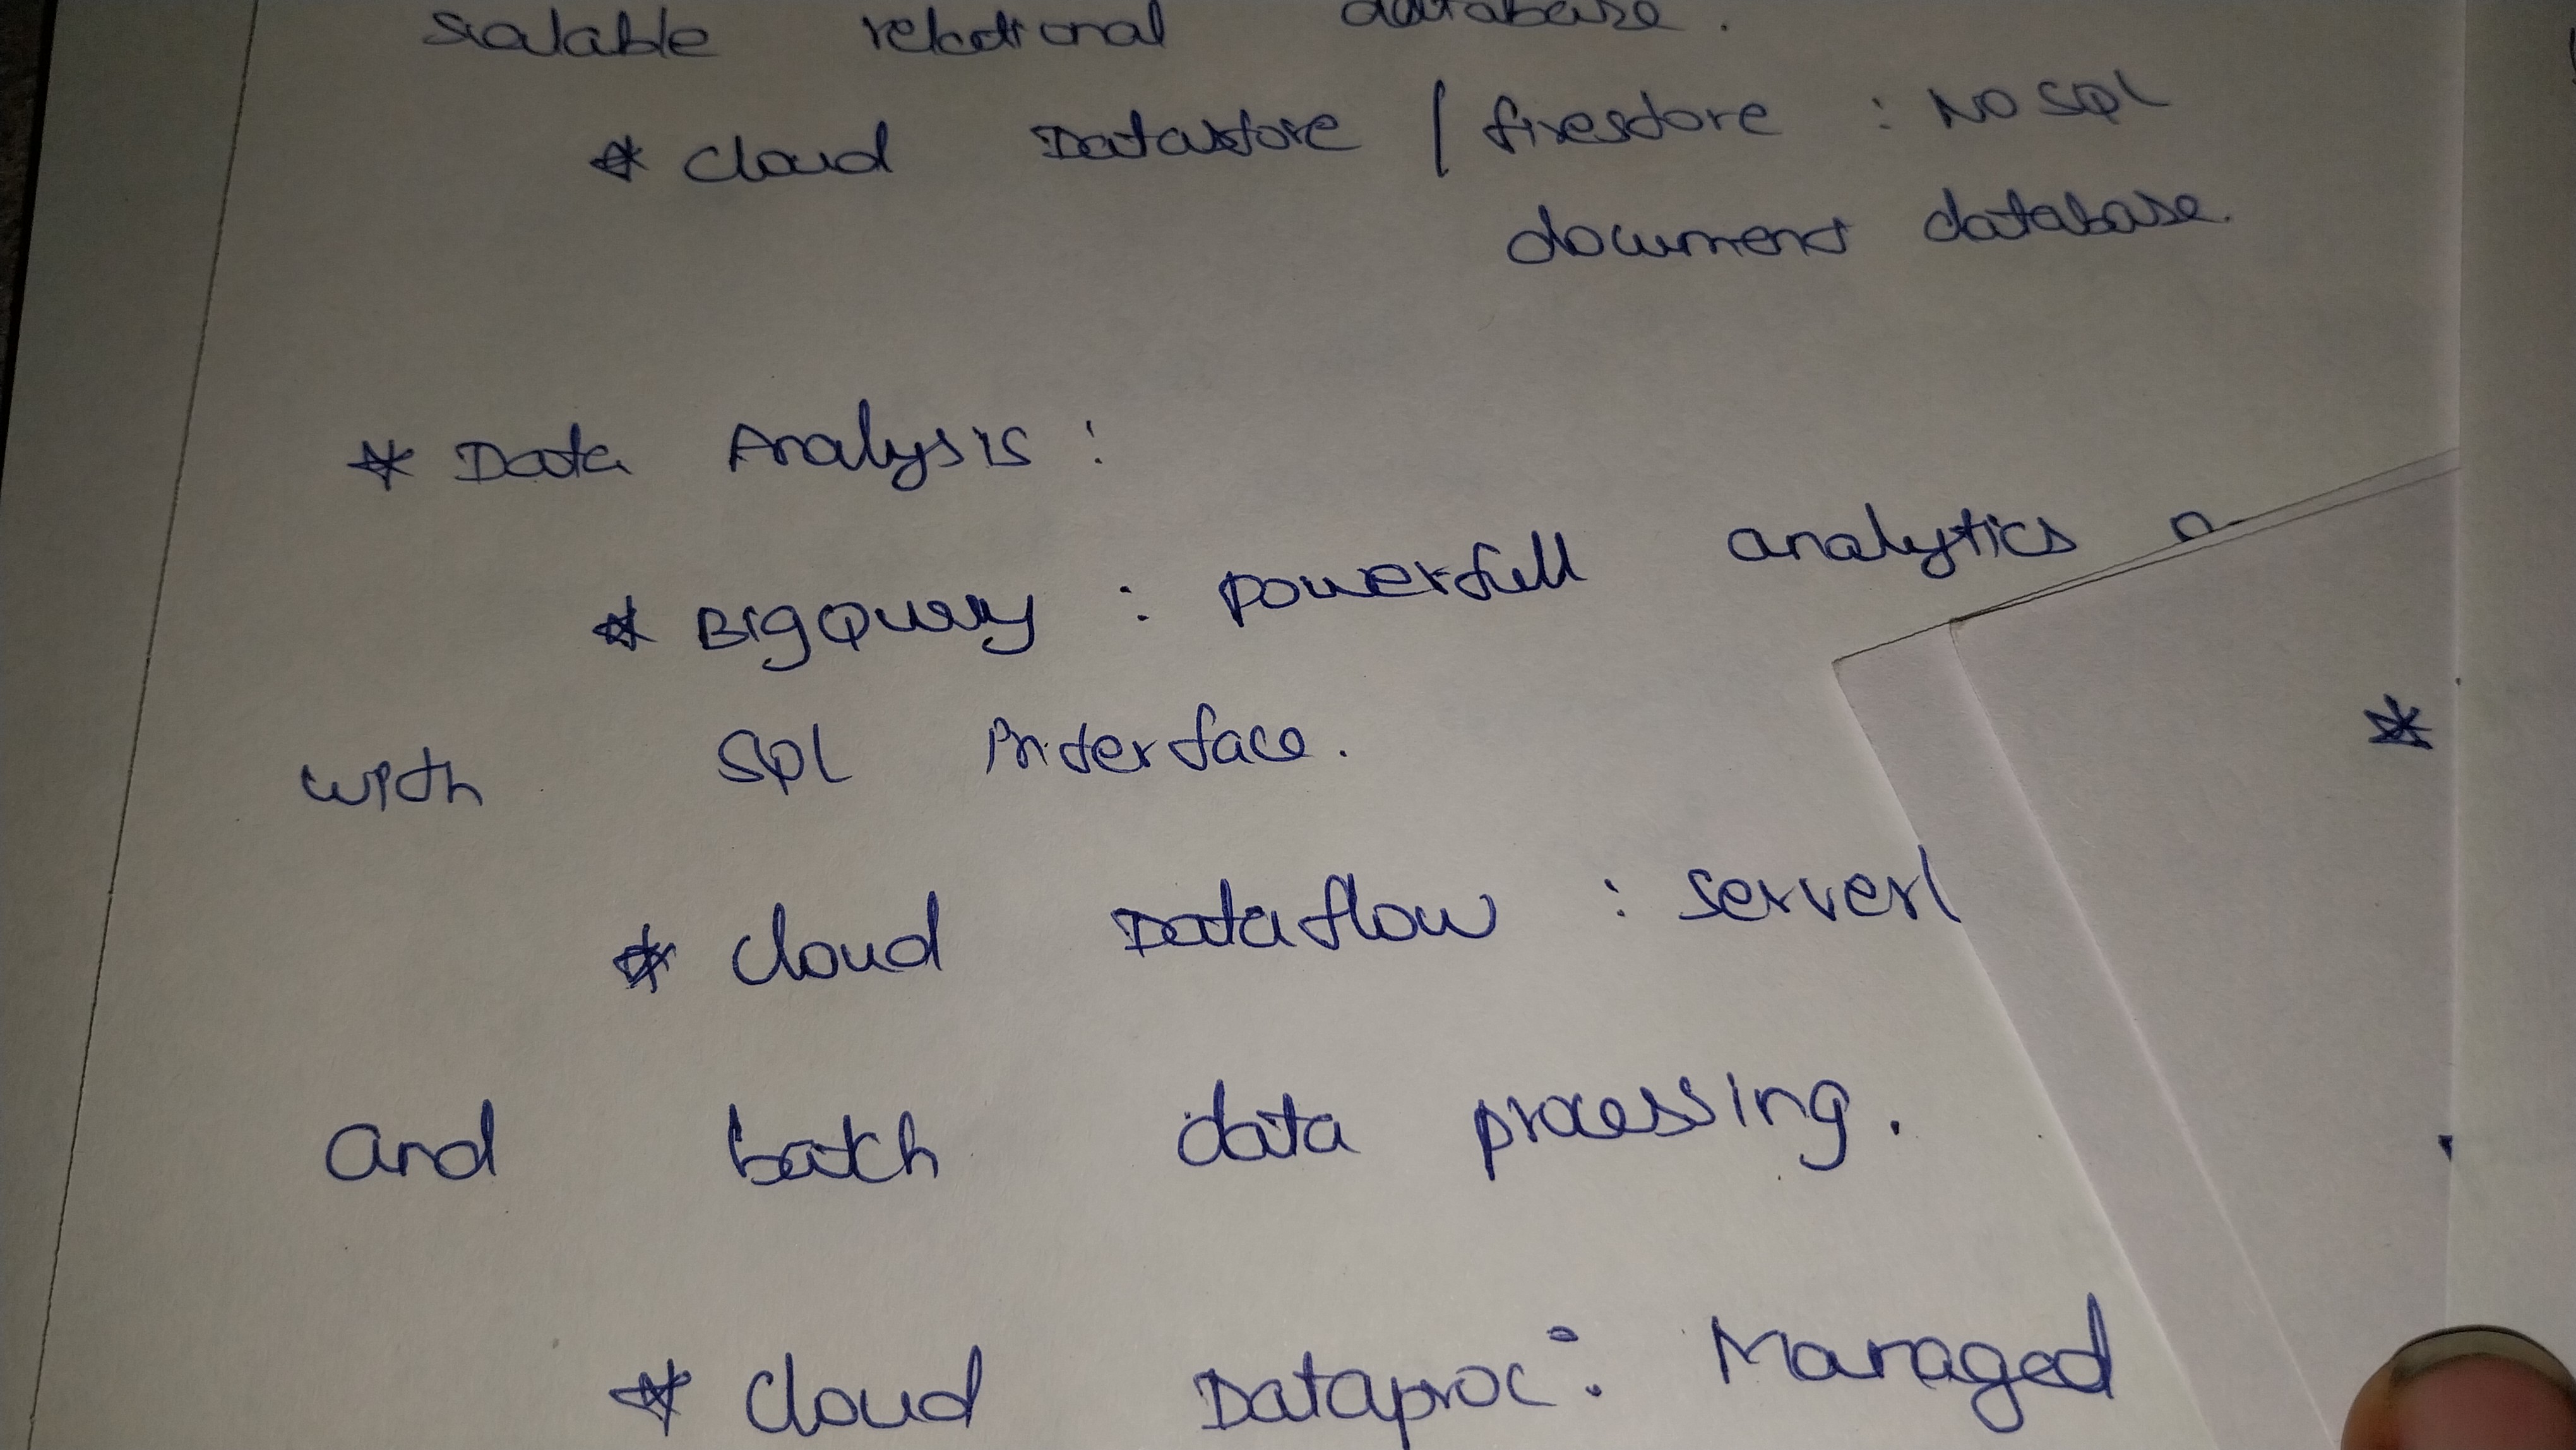 scalable relational database.
* Cloud Datastore / firestore : No SQL
document database.
* Data Analysis :
* BigQuery : powerfull analytics
with SQL interface.
* Cloud Dataflow : server
and batch data processing.
* Cloud Dataproc : Managed